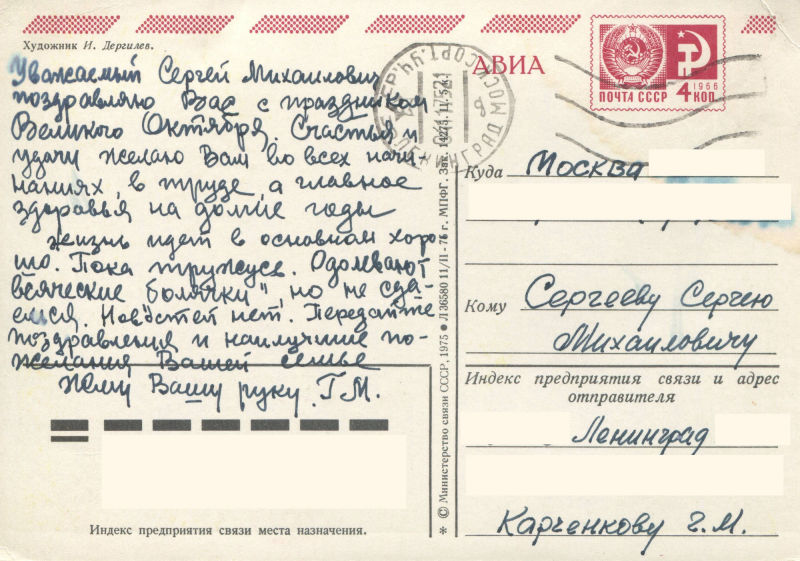 Художник И. Дергилев.
Уважаемый Сергей Михаилович
поздравляю Вас с праздником
Великого Октября. Счастья и
удачи желаю Вам во всех начи-
наниях, в труде, а главное
здоровья на долгие годы
жизнь идет в основном хоро-
шо. Пока тружусь. Одолевают
всяческие болячки", но не сда-
емся. Новостей нет. Передайте
поздравления и наилучшие по-
желания Вашей семье
Жму Вашу руку. Г.М.
Индекс предприятия связи места назначения.
* © Министерство связи СССР, 1975 ● Л 36580 11/II - 75 г. МПФГ. Зак. 14275. 11/52.
АВИА
ЛЕНИНГРАД
ПОЧТА СССР
1966
4 КОП.
Куда Москва
Кому Сергееву Сергею
Михаиловичу
Индекс предприятия связи и адрес
отправителя
Ленинград
Карченкову Г.М.